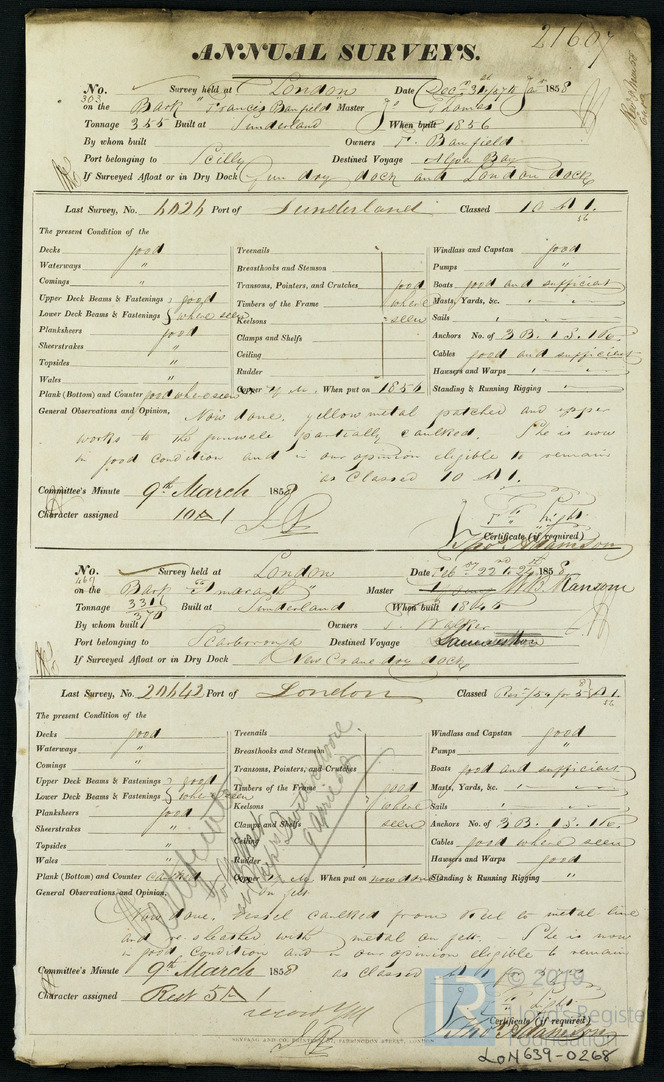 21607
ANNUAL SURVEYS.
No. 303 Survey held at London Date Decr 31 1858
on the Bark "Francis Banfield" Master Thomas
Tonnage 355 Built at Sunderland When built 1856
By whom built Owners T. Banfield
Port belonging to Scilly Destined Voyage Algoa Bay
If Surveyed Afloat or in Dry Dock Gun dry dock and London dock
Last Survey, No. 4024 Port of Sunderland Classed 10 A 1.
The present Condition of the
Decks good
Waterways "
Comings "
Upper Deck Beams & Fastenings } good
Lower Deck Beams & Fastenings } where seen
Planksheers good
Sheerstrakes "
Topsides "
Wales "
Plank (Bottom) and Counter good where seen
Treenails
Breasthooks and Stemson
Transoms, Pointers, and Crutches good
Timbers of the Frame where
Keelsons seen
Clamps and Shelfs
Ceiling
Rudder
Copper When put on 1856
Windlass and Capstan good
Pumps "
Boats good and sufficient
Masts, Yards, &c. " "
Sails " "
Anchors No. of 3 B. 1 S. 1 K.
Cables good and sufficient
Hawsers and Warps " "
Standing & Running Rigging " "
General Observations and Opinion, Now done, yellow metal patched and upper
works to the gunwale partially caulked. She is now
in good condition and in our opinion eligible to remain
as Classed 10 A 1.
Committee's Minute 9th March 1858
Character assigned 10 A 1
Certificate (if required)
Thos Adamson
No. 469 Survey held at London Date Feb 22 1858
on the Bark "Emerald" Master W. B. Ransom
Tonnage 331 Built at Sunderland When built 1846
By whom built Owners T. Walker
Port belonging to Scarborough Destined Voyage
If Surveyed Afloat or in Dry Dock New Crane dry dock
Last Survey, No. 20642 Port of London Classed A 1.
The present Condition of the
Decks good
Waterways "
Comings "
Upper Deck Beams & Fastenings } good
Lower Deck Beams & Fastenings } where seen
Planksheers good
Sheerstrakes "
Topsides "
Wales "
Plank (Bottom) and Counter Caulked
Treenails
Breasthooks and Stemson
Transoms, Pointers, and Crutches
Timbers of the Frame good
Keelsons where
Clamps and Shelfs seen
Ceiling
Rudder
Copper When put on now done
Windlass and Capstan good
Pumps "
Boats good and sufficient
Masts, Yards, &c. " "
Sails " "
Anchors No. of 3 B. 1 S. 1 K.
Cables good where seen
Hawsers and Warps good
Standing & Running Rigging "
General Observations and Opinion, on felt
Now done. Vessel caulked from keel to metal line
and re-sheathed with metal on felt. She is now
in good condition and in our opinion eligible to remain
as classed
Committee's Minute 9th March 1858
Character assigned Rest 5 A 1
Certificate (if required)
Thos Adamson
LR © 2019
Lloyd's Register
Foundation
LON639-0268